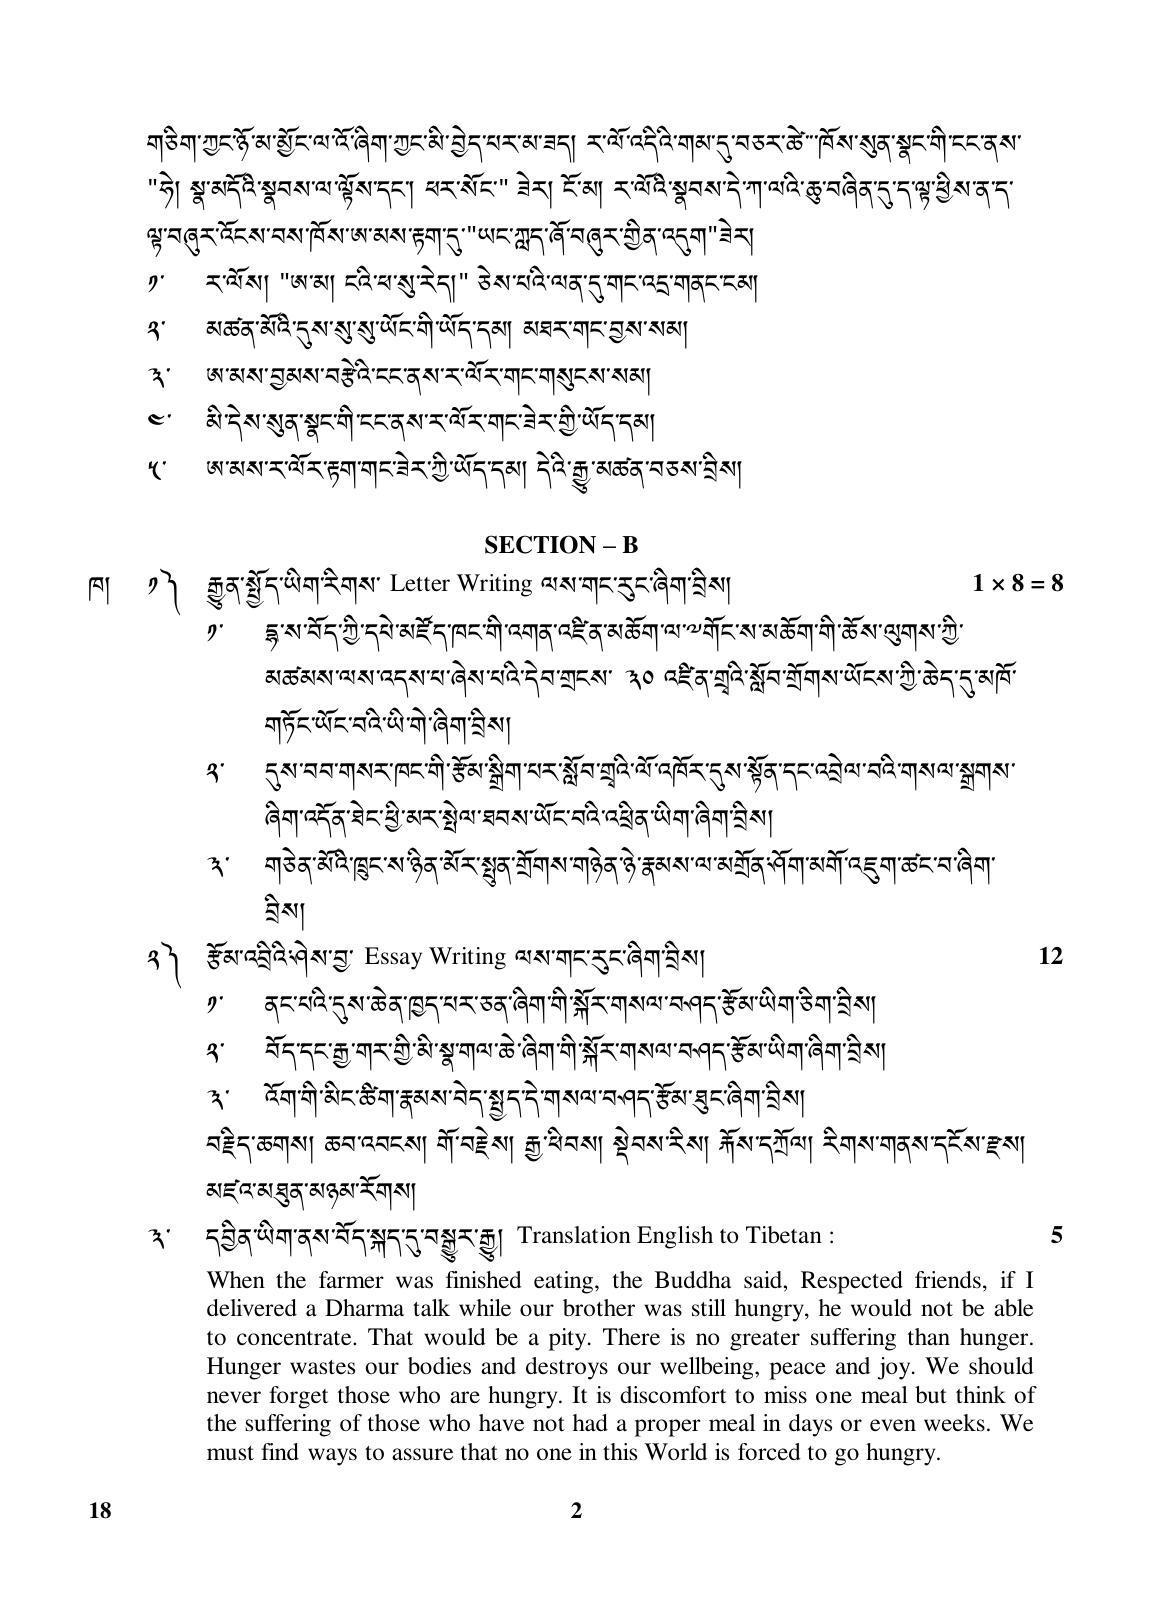 གཅིག་ཀྱང་ཉོ་མ་མྱོང་ལ་འོ་ཞིག་ཀྱང་མི་བྱེད་པར་མ་ཟད། ར་ལོ་འདིའི་གམ་དུ་བཅར་ཚེ་ཁོས་སུན་སྣང་གི་ངང་ནས་
"ཧེ། སྣ་མདོའི་སྣབས་ལ་ལྟོས་དང་། ཕར་སོང་" ཟེར། ངོ་མ། ར་ལོའི་སྣབས་དེ་ཀ་ལའི་ཆུ་བཞིན་དུ་ད་ལྟ་ཕྱིས་ན་ད་
ལྟ་བཞུར་འོངས་བས་ཁོས་ཨ་མས་རྟག་ཏུ་"ཡང་ཀླད་ཞོ་བཞུར་གྱིན་འདུག"ཟེར།
༡་ ར་ལོས། "ཨ་མ། ངའི་ཕ་སུ་རེད།" ཅེས་པའི་ལན་དུ་གང་འདྲ་གནང་ངམ།
༢་ མཚན་མོའི་དུས་སུ་སུ་ཡོང་གི་ཡོད་དམ། མཐར་གང་བྱས་སམ།
༣་ ཨ་མས་བྱམས་བརྩེའི་ངང་ནས་ར་ལོར་གང་གསུངས་སམ།
༤་ མི་དེས་སུན་སྣང་གི་ངང་ནས་ར་ལོར་གང་ཟེར་གྱི་ཡོད་དམ།
༥་ ཨ་མས་ར་ལོར་རྟག་གང་ཟེར་ཀྱི་ཡོད་དམ། དེའི་རྒྱུ་མཚན་བཅས་བྲིས།
SECTION – B
ཁ། ༡༽ རྒྱུན་སྤྱོད་ཡིག་རིགས་ Letter Writing ལས་གང་རུང་ཞིག་བྲིས། 1 × 8 = 8
༡་ དྷ་ས་བོད་ཀྱི་དཔེ་མཛོད་ཁང་གི་འགན་འཛིན་མཆོག་ལ་༧གོང་ས་མཆོག་གི་ཆོས་ལུགས་ཀྱི་
མཚམས་ལས་འདས་པ་ཞེས་པའི་དེབ་གྲངས་ ༣༠ འཛིན་གྲྭའི་སློབ་གྲོགས་ཡོངས་ཀྱི་ཆེད་དུ་མཁོ་
གཏོང་ཡོང་བའི་ཡི་གེ་ཞིག་བྲིས།
༢་ དུས་བབ་གསར་ཁང་གི་རྩོམ་སྒྲིག་པར་སློབ་གྲྭའི་ལོ་འཁོར་དུས་སྟོན་དང་འབྲེལ་བའི་གསལ་སྒྲགས་
ཞིག་འདོན་ཐེང་ཕྱི་མར་སྤེལ་ཐབས་ཡོང་བའི་འཕྲིན་ཡིག་ཞིག་བྲིས།
༣་ གཅེན་མོའི་ཁྲུང་ས་ཉིན་མོར་སྤུན་གྲོགས་གཉེན་ཉེ་རྣམས་ལ་མགྲོན་ཤོག་མགོ་འཇུག་ཚང་བ་ཞིག་
བྲིས།
༢༽ རྩོམ་འབྲིའི་ཤེས་བྱ་ Essay Writing ལས་གང་རུང་ཞིག་བྲིས། 12
༡་ ནང་པའི་དུས་ཆེན་ཁྱད་པར་ཅན་ཞིག་གི་སྐོར་གསལ་བཤད་རྩོམ་ཡིག་ཅིག་བྲིས།
༢་ བོད་དང་རྒྱ་གར་གྱི་མི་སྣ་གལ་ཆེ་ཞིག་གི་སྐོར་གསལ་བཤད་རྩོམ་ཡིག་ཞིག་བྲིས།
༣་ འོག་གི་མིང་ཚིག་རྣམས་བེད་སྤྱད་དེ་གསལ་བཤད་རྩོམ་ཐུང་ཞིག་བྲིས།
བརྗིད་ཆགས། ཆབ་འབངས། གོ་བརྗེས། རྒྱ་ཕིབས། སྡེབས་རིས། རྐོས་དཀྲོལ། རིགས་གནས་དངོས་རྫས།
མཛའ་མཐུན་མཉམ་རོགས།
༣་ དབྱིན་ཡིག་ནས་བོད་སྐད་དུ་བསྒྱུར་རྒྱུ། Translation English to Tibetan : 5
When the farmer was finished eating, the Buddha said, Respected friends, if I
delivered a Dharma talk while our brother was still hungry, he would not be able
to concentrate. That would be a pity. There is no greater suffering than hunger.
Hunger wastes our bodies and destroys our wellbeing, peace and joy. We should
never forget those who are hungry. It is discomfort to miss one meal but think of
the suffering of those who have not had a proper meal in days or even weeks. We
must find ways to assure that no one in this World is forced to go hungry.
18 2